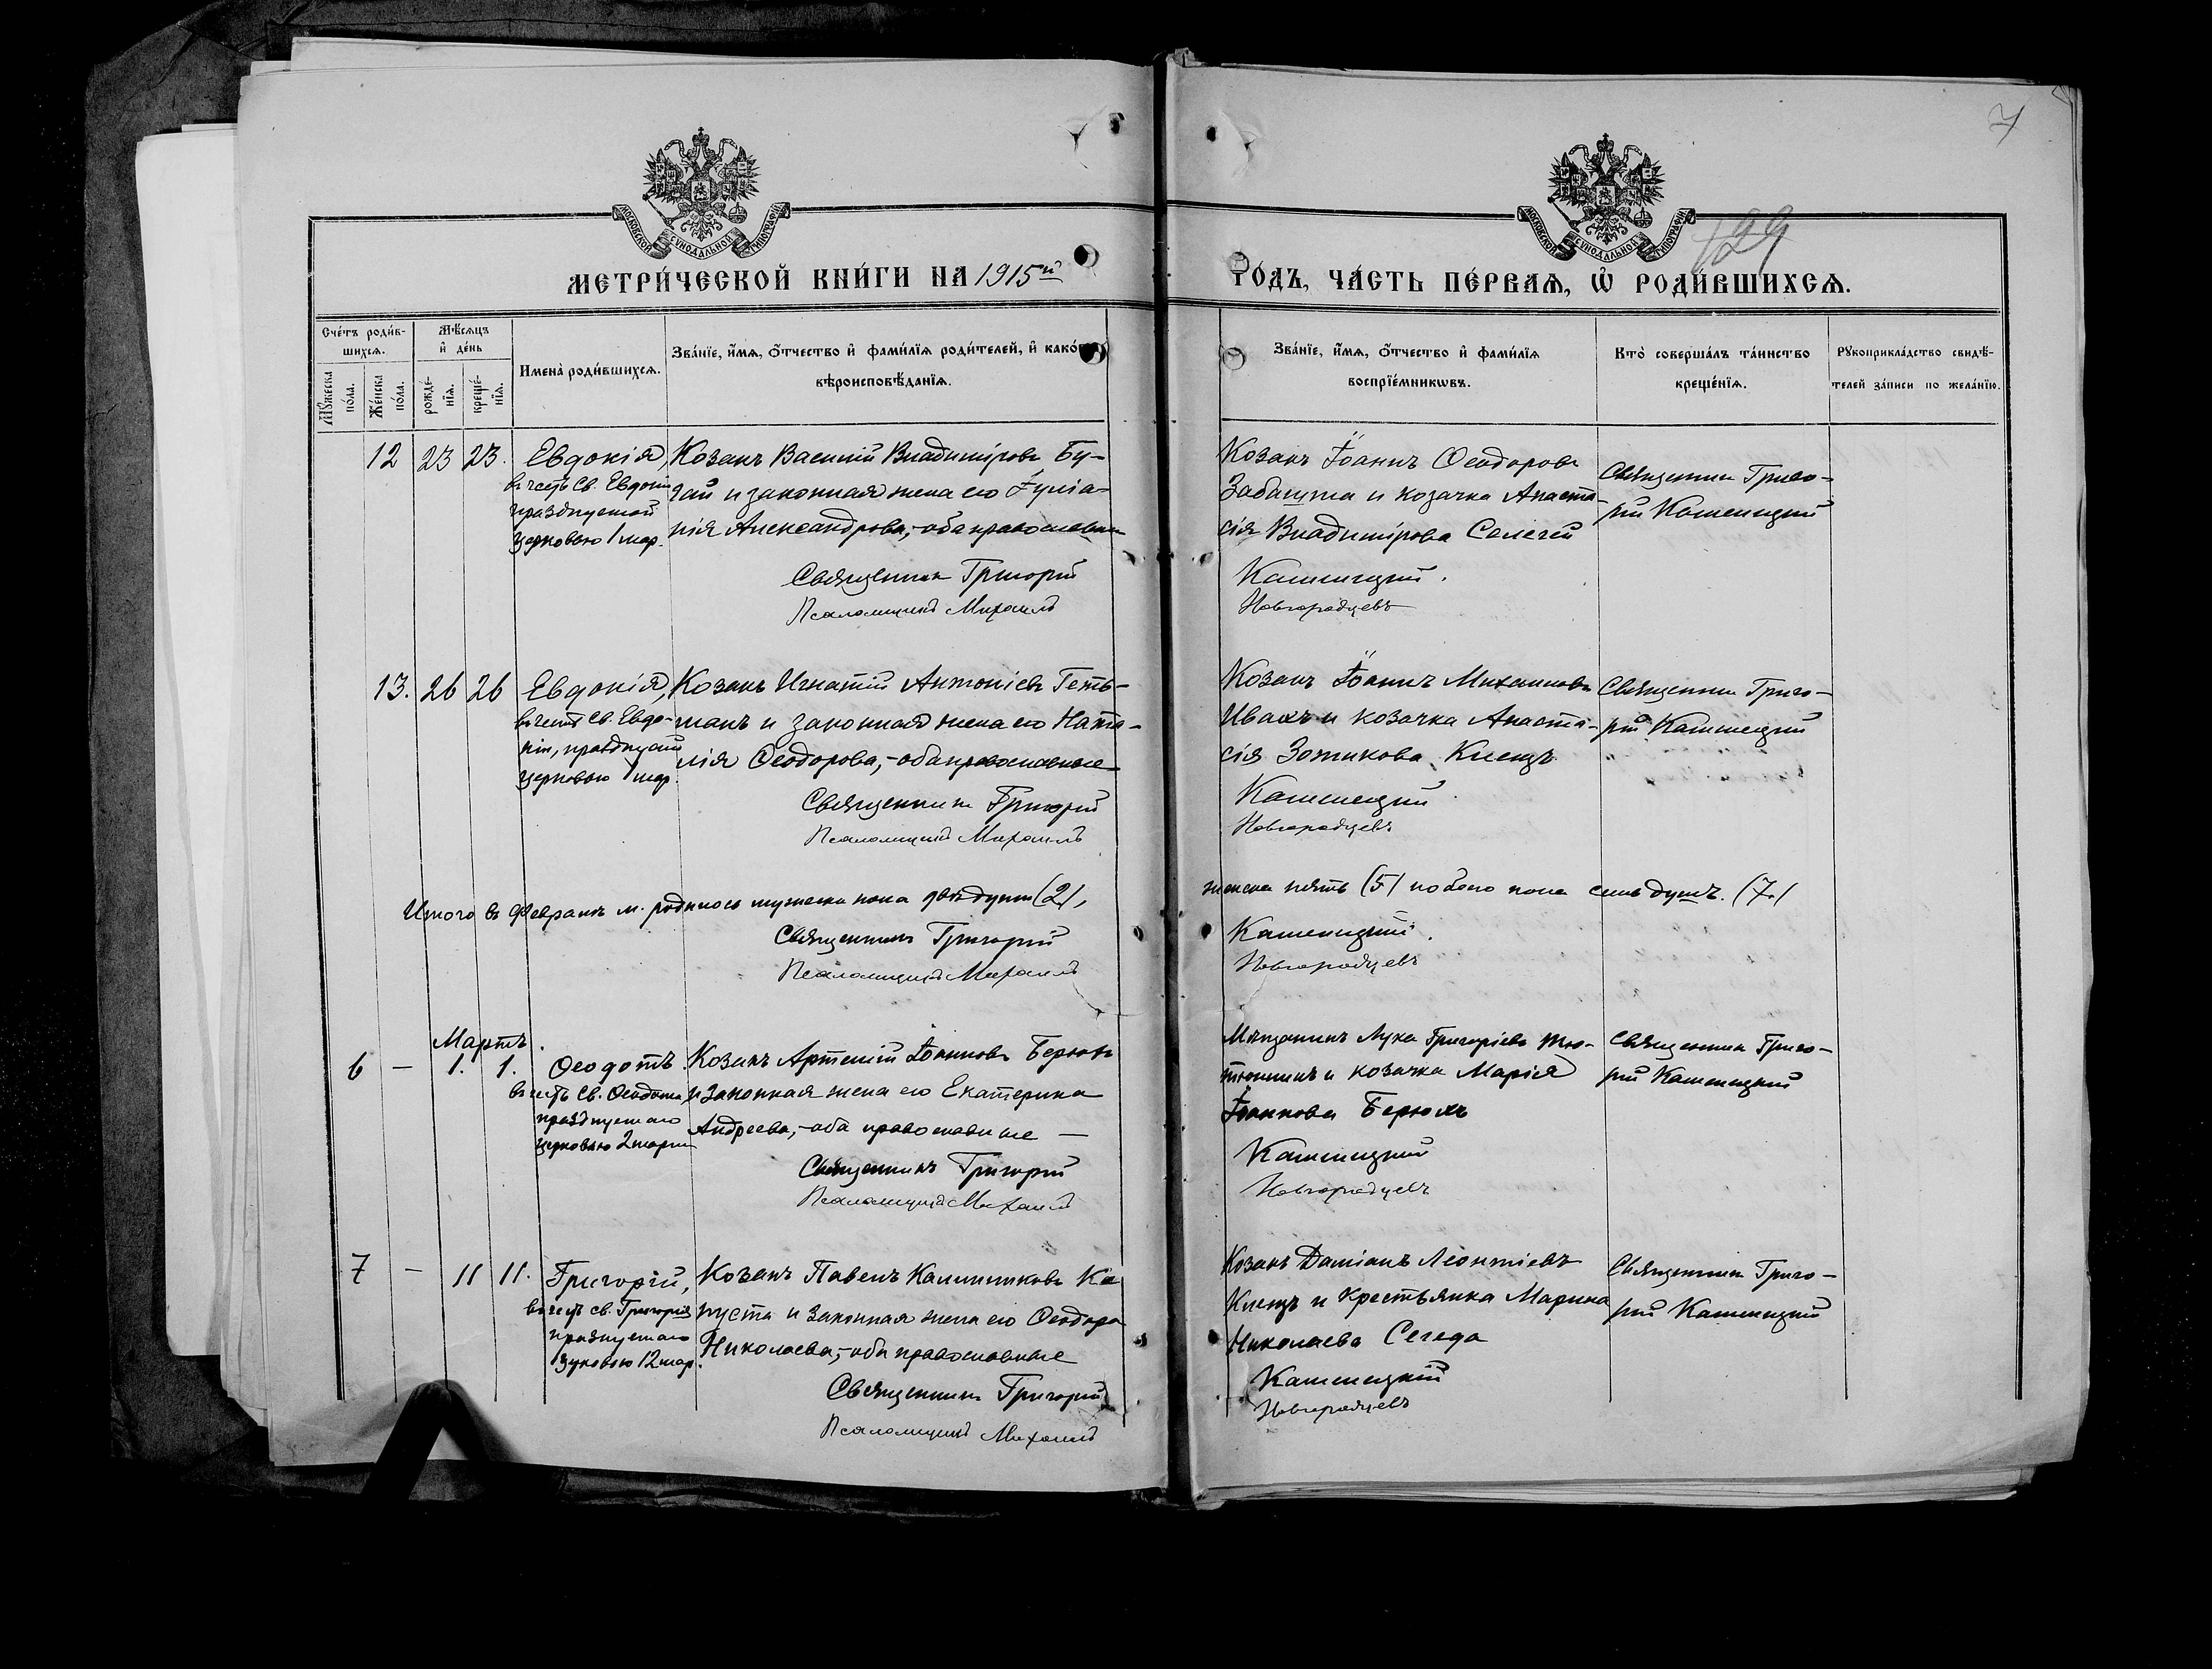 7
129
МОСКОВСКОЙ СУНОДАЛЬНОЙ ТИПОГРАФІИ
МОСКОВСКОЙ СУНОДАЛЬНОЙ ТИПОГРАФІИ
МЕТРИ́ЧЕСКОЙ КНИ́ГИ НА 1915й
ГО́ДЪ, ЧА́СТЬ ПЕ́РВАѦ, Ѡ҆ РОДИ́ВШИХСѦ.
Сче́тъ роди́в-
шихсѧ.
Мꙋ́жеска по́ла.
Же́нска по́ла.
Мѣ́сѧцъ
и҆ де́нь
рожде́-
нїѧ.
креще́-
нїѧ.
Имена̀ роди́вшихсѧ.
Зва́нїе, и҆́мѧ, ѻ҆́тчество и҆ фами́лїѧ роди́телей, и҆ како́
вѣроисповѣ́данїѧ.
Зва́нїе, и҆́мѧ, ѻ҆́тчество и҆ фами́лїѧ
воспрїе́мникѡвъ.
Кто̀ соверша́лъ та́инство
креще́нїѧ.
Рꙋкоприкла́дство свидѣ́-
телей за́писи по жела́нїю.
12 23 23. Евдокія,
въ честь Св. Евдокіи
празднуемой
церковью 1 мар.
Козакъ Василій Владиміровъ Бу-
гай и законная жена его Іуліа-
нія Александрова, - оба православные
Священникъ Григорій
Псаломщикъ Михаилъ
Козакъ Іоаннъ Ѳеодоровъ
Забашта и козачка Анаста-
сія Владимірова Селегей
Каменецкій.
Новгородцевъ
Священникъ Григо-
рій Каменецкій
13. 26 26 Евдокія,
въ честь Св. Евдо-
кіи, празднуемой
церковью 1 мар.
Козакъ Игнатій Антоніевъ Геть-
манъ и законная жена его Ната-
лія Ѳеодорова, - оба православные
Священникъ Григорій
Псаломщикъ Михаилъ
Козакъ Іоаннъ Михаиловъ
Ивахъ и козачка Анаста-
сія Зотикова Кнецъ
Каменецкій
Новгородцевъ
Священникъ Григо-
рій Каменецкій
Итого въ Февралѣ м. родилось мужеска пола двѣ души (2),
женска пять (5) и обоего пола семь душъ. (7.)
Священникъ Григорій
Псаломщикъ Михаилъ
Каменецкій.
Новгородцевъ
Мартъ.
6 — 1. 1. Ѳеодотъ
въ честь Св. Ѳеодота,
празднуемаго
церковью 2 марта
Козакъ Артемій Іоанновъ Берюхъ
и законная жена его Екатерина
Андреева, - оба православные —
Священникъ Григорій
Псаломщикъ Михаилъ
Мѣщанинъ Лука Григоріевъ Тю-
тюнникъ и козачка Марія
Іоаннова Берюхъ
Каменецкій
Новгородцевъ
Священникъ Григо-
рій Каменецкій
7 — 11 11. Григорій,
въ честь св. Григорія
празднуемаго
церковью 12 мар.
Козакъ Павелъ Каллиниковъ Ка
пуста и законная жена его Ѳеодора
Николаева, - оба православные
Священникъ Григорій
Псаломщикъ Михаилъ
Козакъ Даміанъ Леонтіевъ
Кнецъ и крестьянка Марина
Николаева Сегеда
Каменецкій
Новгородцевъ
Священникъ Григо-
рій Каменецкій